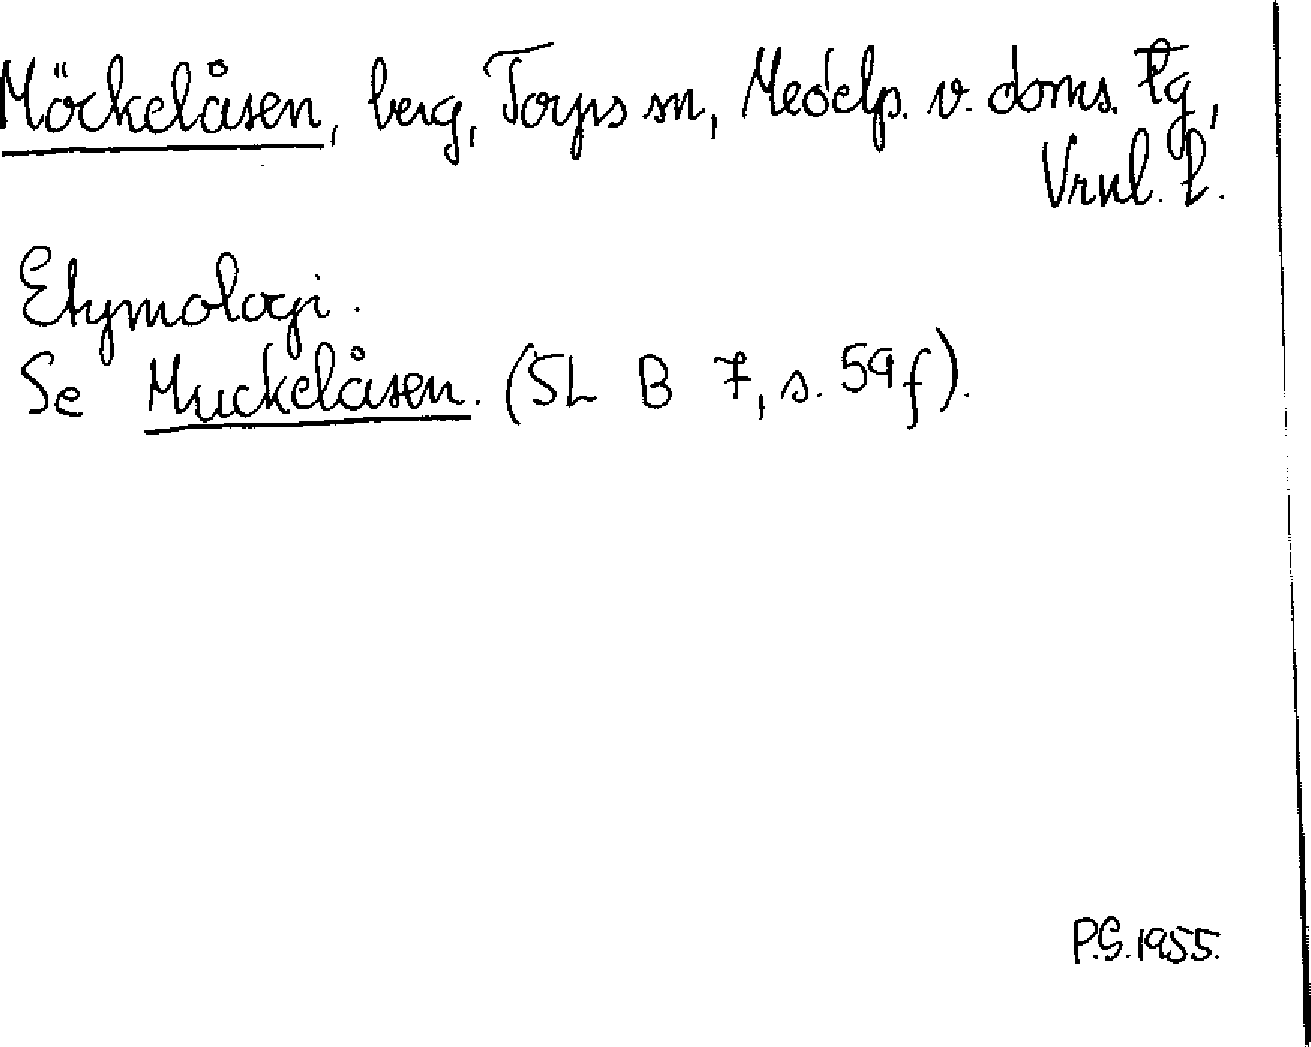 Möckelåsen, berg, Torps sn, Medelp. v. doms. tg,
Vrnl. l.
Etymologi.
Se Muckelåsen. (SL B 7, s. 59 f).
P.S. 1955.